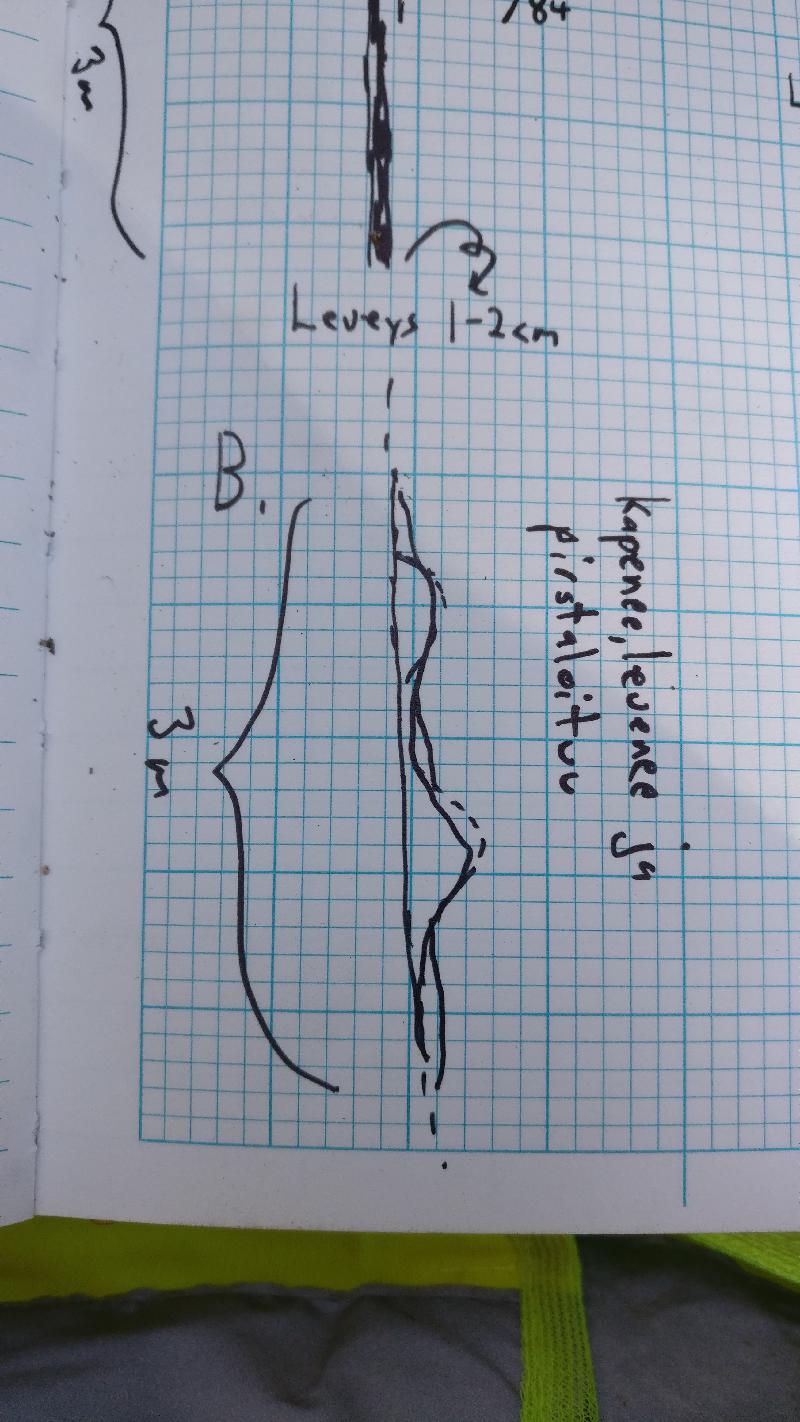 /84
3m
Leveys 1-2cm
B.
3m
Kapenee, levenee ja
pirstaloituu